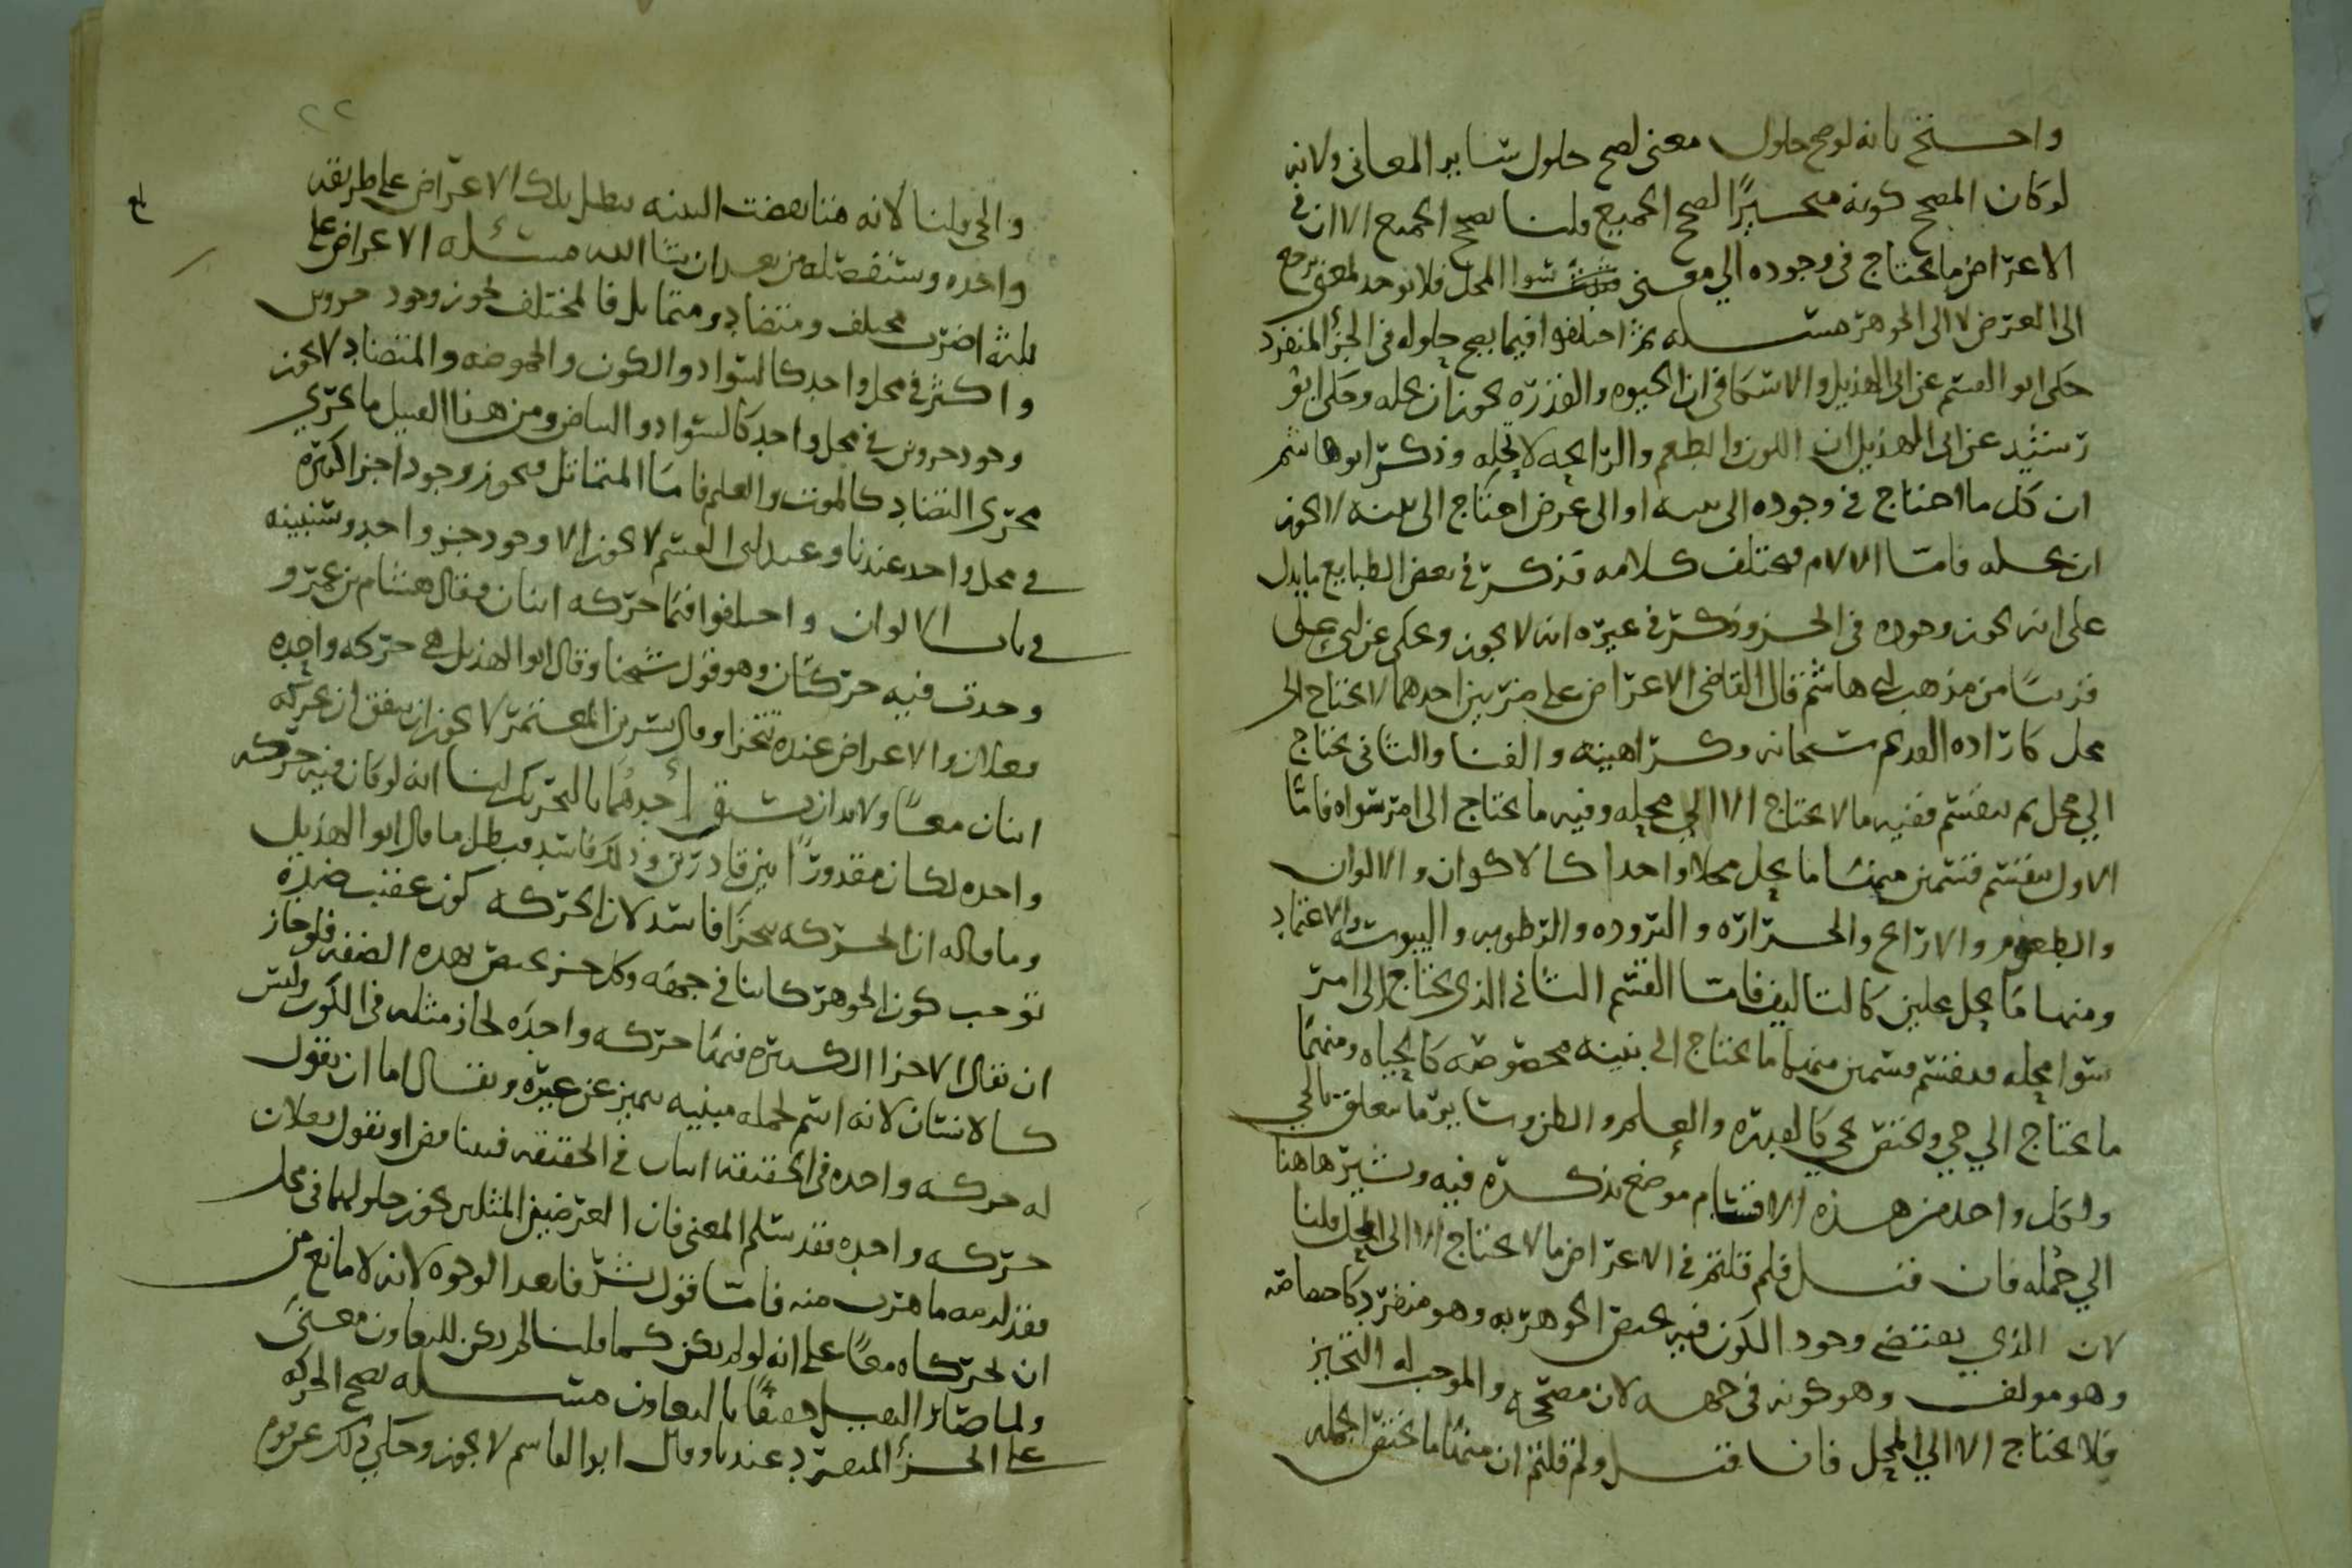 واحتج بانه لو صح حلول معنى لصح حلول سائر المعاني ولانه
لو كان المصحح كونه متحيزًا لصح الجميع قلنا يصح الجميع الا ان في
الاعراض ما يحتاج في وجوده الى معنى سوا المحل فلا يوجد لمعنى يرجع
الى العرض لا الى الجوهر مسئله ثم اختلفوا فيما يصح حلوله في الجزء المنفرد
حكى ابو القسم عن ابي الهذيل والاسكافي ان الحيوه والقدره يجوز ان يحله وحكى ابو
رشيد عن ابي الهذيل ان اللون والطعم والرائحه لا تحله وذكر ابو هاشم
ان كل ما احتاج في وجوده الى بنيه او الى عرض احتاج الى بنيه لا يجوز
ان يحله فامّا الالام فمختلف كلامه فذكر في بعض الطبايع ما يدل
على انه يجوز وجوده في الجزو وذكر في غيره انه لا يجوز وحكى عن ابي علي
قريبًا من مذهب ابي هاشم قال القاضي الاعراض على ضربين احدهما لا يحتاج الى
محل كارادة القديم سبحانه وكراهيته والفنا والثاني يحتاج
الي محل ثم ينقسم ففيه ما لا يحتاج الا الي محله وفيه ما يحتاج الى امر سواه فامّا
الاول ينقسم قسمين منها ما يحل محلا واحدا كالاكوان والالوان
والطعوم والارايح والحراره والبروده والرطوبه واليبوسه والاعتماد
ومنها ما يحل محلين كالتاليف فامّا القسم الثاني الذي يحتاج الى امر
سوا محله فينقسم قسمين منها ما يحتاج الى بنيه مخصوصه كالحياه ومنها
ما يحتاج الي حي ويختص بحي كالقدره والعلم والظن وسائر ما يتعلق بالحي
ولكل واحد من هذه الاقسام موضع نذكره فيه ونشير هاهنا
الي جمله فان قيل فلم قلتم في الاعراض ما لا يحتاج الا الى المحل قلنا
لان الذي يقتضي وجود الكون فيه يختص الجوهر به وهو منفرد كاختصاصه
وهو مولف وهو كونه في جهه لان مصححه والموجب له التحيز
فلا يحتاج الا الي المحل فان قيل ولم قلتم ان منها ما يختص الجمله
٢٢
والحي قلنا لانه متا نقضت البنيه بطل تلك الاعراض على طريقه
واحده وسنفصله من بعد ان شا الله مسئله الاعراض على
ثلثه اضرب مختلف ومتضاد ومتماثل فالمختلف يجوز وجود جزوين
واكثر في محل واحد كالسواد والكون والحموضه والمتضاد لا يجوز
وجود جزوين في محل واحد كالسواد والبياض ومن هذا القبيل ما يجري
مجرى التضاد كالموت والعلم فامّا المتماثل فيجوز وجود اجزا كثيره
في محل واحد عندنا وعند ابي القسم لا يجوز الا وجود جزو واحد وسنبينه
في باب الالوان واختلفوا فيما حركه اثنان فقال هشام بن عمرو
وحدث فيه حركتان وهو قول شيخنا وقال ابو الهذيل هي حركه واحده
فعلان والاعراض عنده تتجزا وقال بشر بن المعتمر لا يجوز ان يتفق ان يحركه
اثنان معًا ولا بد ان يسبق أحدهما بالتحريك لنا انه لو كان فيه حركه
واحده لكان مقدورًا بين قادرين وذلك فاسد فبطل ما قال ابو الهذيل
وما قاله ان الحركه تتجزا فاسد لان الحركه كون عقيب ضده
توجب كون الجوهر كاينا في جهه وكل جزو يختص بهذه الصفه فلو جاز
ان يقال الاجزا الكثيره فيها حركه واحده لجاز مثله في الكون وليس
كالانسان لانه اسم لجمله مبنيه يتميز عن غيره ويقال اما ان يقول
له حركه واحده في الحقيقه اثنان في الحقيقه فيتناقض او يقول فعلان
حركه واحده فقد سلم المعنى فان العرضين المثلين يجوز حلولهما في محل
فقد لزمه ما هرب منه فامّا قول بشر فابعد الوجوه لانه لا مانع من
ان يحركاه معًا على انه لو لم يكن كما قلنا لم يكن للتعاون معنى
ولما صار الثقيل خفيفًا بالتعاون مسئله يصح الحركه
على الجزء المنفرد عندنا وقال ابو القاسم لا يجوز وحكي ذلك عن قوم